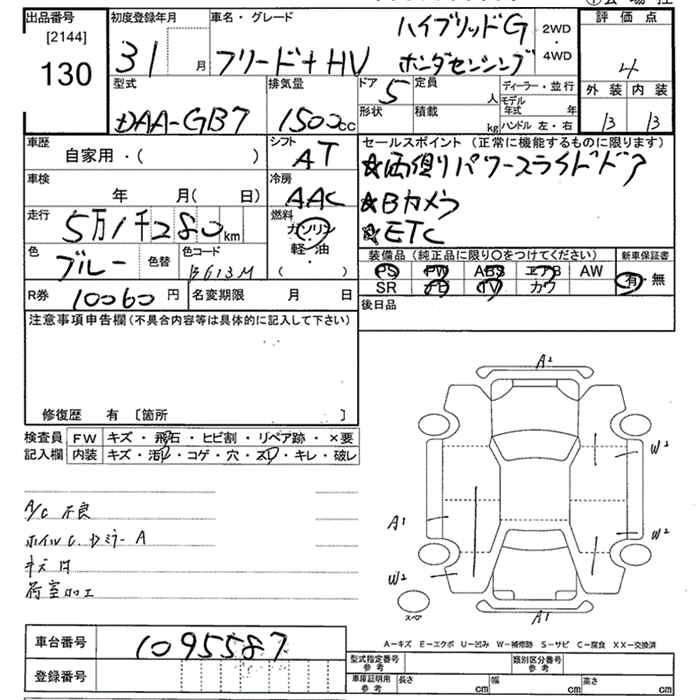 出品番号
[2144]
130
初度登録年月
31 月
車名・グレード
フリード+ HV
ハイブリッドG
ホンダセンシング
2WD
4WD
評価点
4
外装 内装
B B
型式
DAA-GB7
排気量
1500cc
ドア 5
定員 人
形状
積載 kg
ディーラー・並行
モデル年式 年
ハンドル 左・右
車歴
自家用・( )
シフト
AT
セールスポイント(正常に機能するものに限ります)
★両側パワースライドドア
★Bカメラ
★ETC
車検
年 月( 日)
冷房
AAC
走行
5万1千280km
燃料
ガソリン
軽・油
色
ブルー
色替
色コード
BG13M
装備品(純正品に限り○をつけてください)
PS PW ABS エアB AW
SR ナビ TV カワ
新車保証書
有・無
R券 10060円
名変期限 月 日
後日品
注意事項申告欄(不具合内容等は具体的に記入して下さい)
修復歴 有 〔箇所 〕
検査員
記入欄
FW キズ・飛石・ヒビ割・リペア跡・×要
内装 キズ・汚れ・コゲ・穴・スレ・キレ・破レ
A/C 不良
ホイルC.Dミラー A
キズ 凹
荷室加工
A2
W2
A1
W2
W2
A1
スペア
A-キズ E-エクボ U-凹み W-補修跡 S-サビ C-腐食 XX-交換済
車台番号
1095587
登録番号
型式指定番号
参考
類別区分番号
参考
車庫証明用
参考
長さ cm
幅 cm
高さ cm